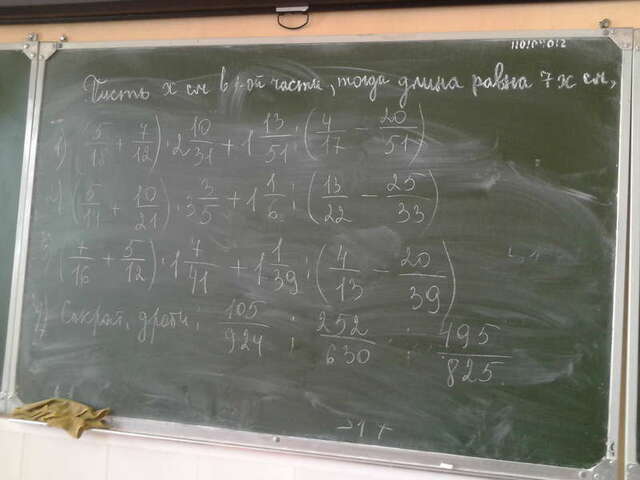 Пусть x см в 1-ой части, тогда длина равна 7x см,
1) (5/18 + 7/12) · 2 10/31 + 1 13/51 : (4/17 − 20/51)
2) (5/14 + 10/21) · 3 3/5 + 1 1/6 : (13/22 − 25/33)
3) (7/16 + 5/12) · 1 7/41 + 1 1/39 : (4/13 − 20/39)
4) Сократ. дроби: 105/924 ; 252/630 ; 495/825